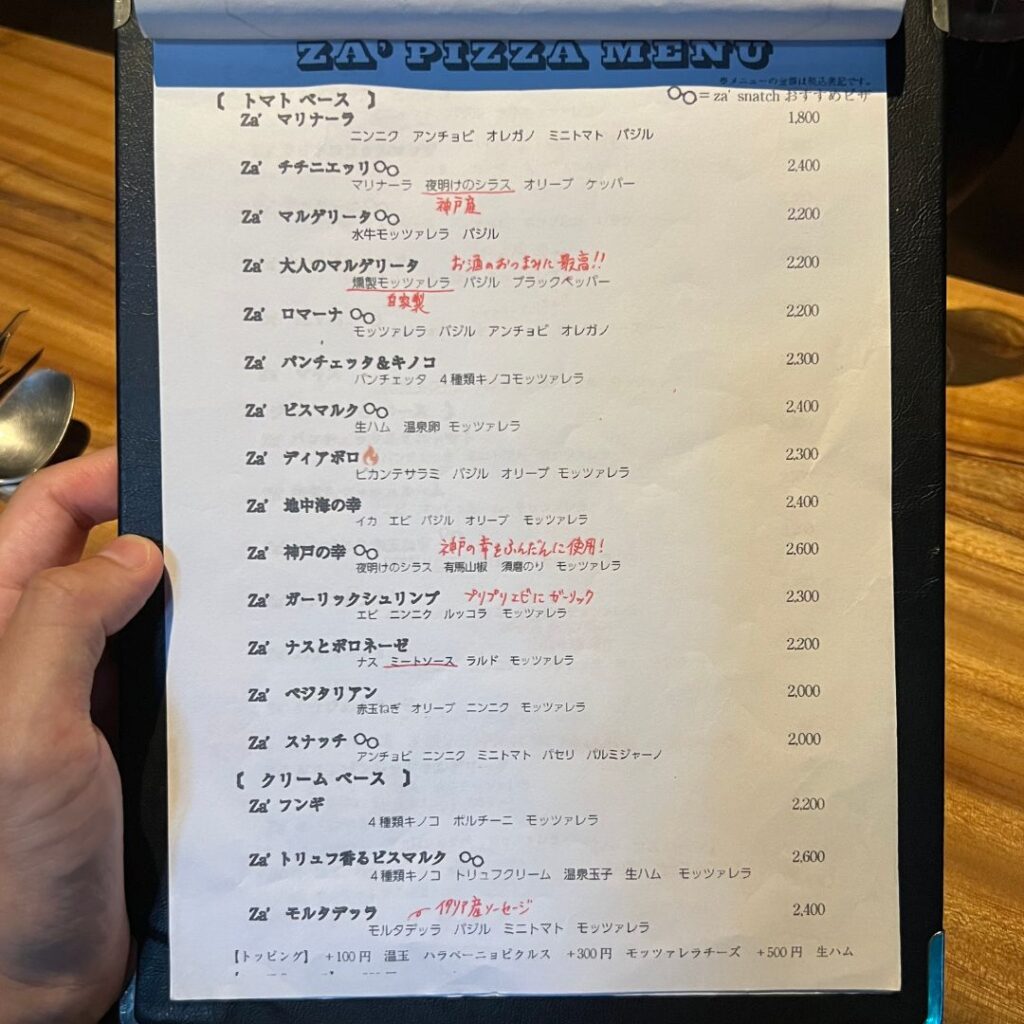 ZA' PIZZA MENU
※メニューの金額は税込表記です。
= za' snatch おすすめピザ
【 トマト ベース 】
Za' マリナーラ 1,800
ニンニク アンチョビ オレガノ ミニトマト バジル
Za' チチニエッリ 2,400
マリナーラ 夜明けのシラス オリーブ ケッパー
神戸産
Za' マルゲリータ 2,200
水牛モッツァレラ バジル
Za' 大人のマルゲリータ お酒のおつまみに最高!! 2,200
燻製モッツァレラ バジル ブラックペッパー
自家製
Za' ロマーナ 2,200
モッツァレラ バジル アンチョビ オレガノ
Za' パンチェッタ&キノコ 2,300
パンチェッタ 4種類キノコモッツァレラ
Za' ビスマルク 2,400
生ハム 温泉卵 モッツァレラ
Za' ディアボロ🔥 2,300
ピカンテサラミ バジル オリーブ モッツァレラ
Za' 地中海の幸 2,400
イカ エビ バジル オリーブ モッツァレラ
Za' 神戸の幸 神戸の幸をふんだんに使用! 2,600
夜明けのシラス 有馬山椒 須磨のり モッツァレラ
Za' ガーリックシュリンプ プリプリエビにガーリック 2,300
エビ ニンニク ルッコラ モッツァレラ
Za' ナスとボロネーゼ 2,200
ナス ミートソース ラルド モッツァレラ
Za' ベジタリアン 2,000
赤玉ねぎ オリーブ ニンニク モッツァレラ
Za' スナッチ 2,000
アンチョビ ニンニク ミニトマト パセリ パルミジャーノ
【 クリーム ベース 】
Za' フンギ 2,200
4種類キノコ ポルチーニ モッツァレラ
Za' トリュフ香るビスマルク 2,600
4種類キノコ トリュフクリーム 温泉玉子 生ハム モッツァレラ
Za' モルタデッラ イタリア産ソーセージ 2,400
モルタデッラ バジル ミニトマト モッツァレラ
【トッピング】 +100円 温玉 ハラペーニョピクルス +300円 モッツァレラチーズ +500円 生ハム